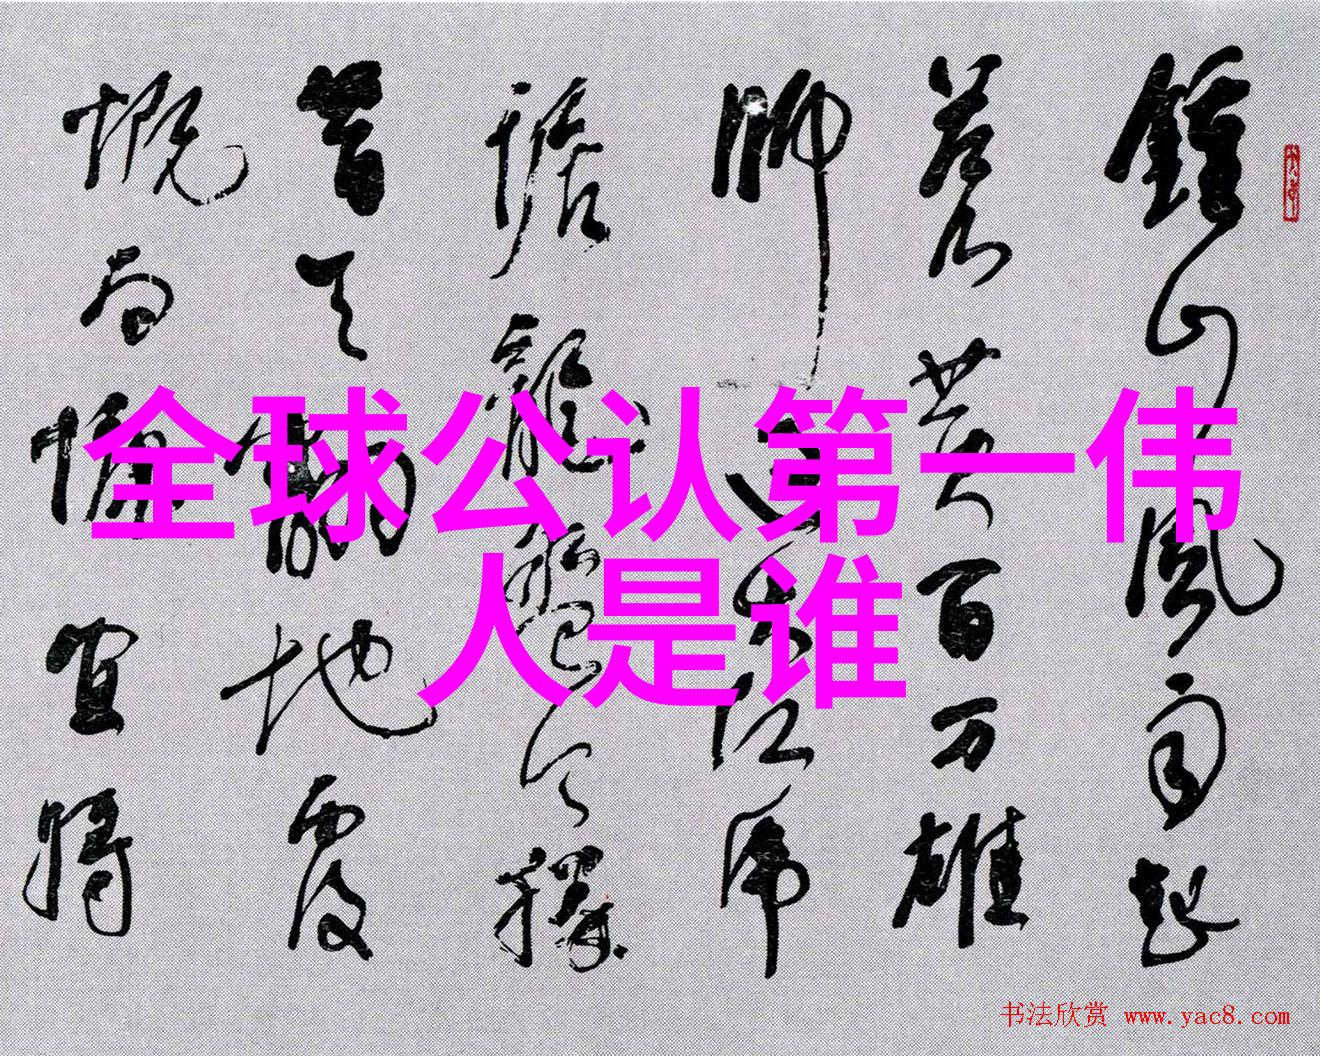 鍾山風雨起
蒼黃百万雄
師过大江虎
踞龍盤今勝
昔天翻地覆
慨而慷宜将
全球公认第一伟
人是谁
书法欣赏 www.yac8.com